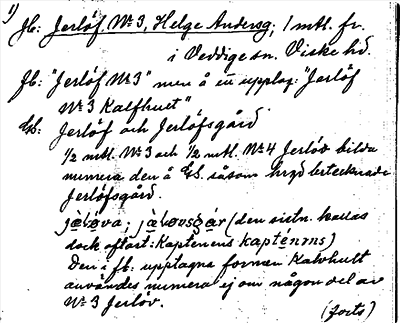 1) Jb: Jerlöf No 3, Helge Andersg; 1 mtl. fr.
i Veddige sn. Viske hd.
Jb: "Jerlöf No 3" men å en upplag. "Jerlöf
No 3 Kalfhult"
Ek: Jerlöf och Jerlöfsgård.
1/2 mtl. No 3 och 1/2 mtl. No 4 Jerlöv bilda
numera den å Ek. såsom hrgd betecknade
Jerlöfsgård.
(den sistn. kallas
dock oftast: Kaptenens kapténens)
Den i Jb. upptagna formen Kalvhult
användes numera ej om någon del av
No 3 Jerlöv.
(forts)